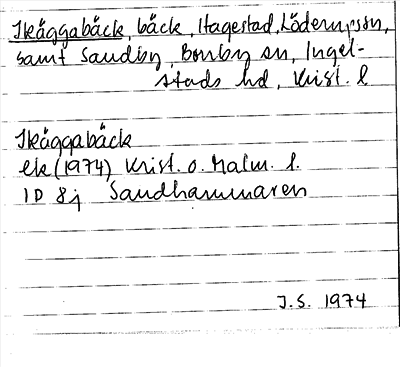 Skäggabäck, bäck, Hagestad, Löderups sn,
samt Sandby, Borrby sn, Ingel-
stads hd, Krist. l
Skäggabäck
ek (1974) Krist. o. Malm. l.
1D 8j Sandhammaren
J.S. 1974